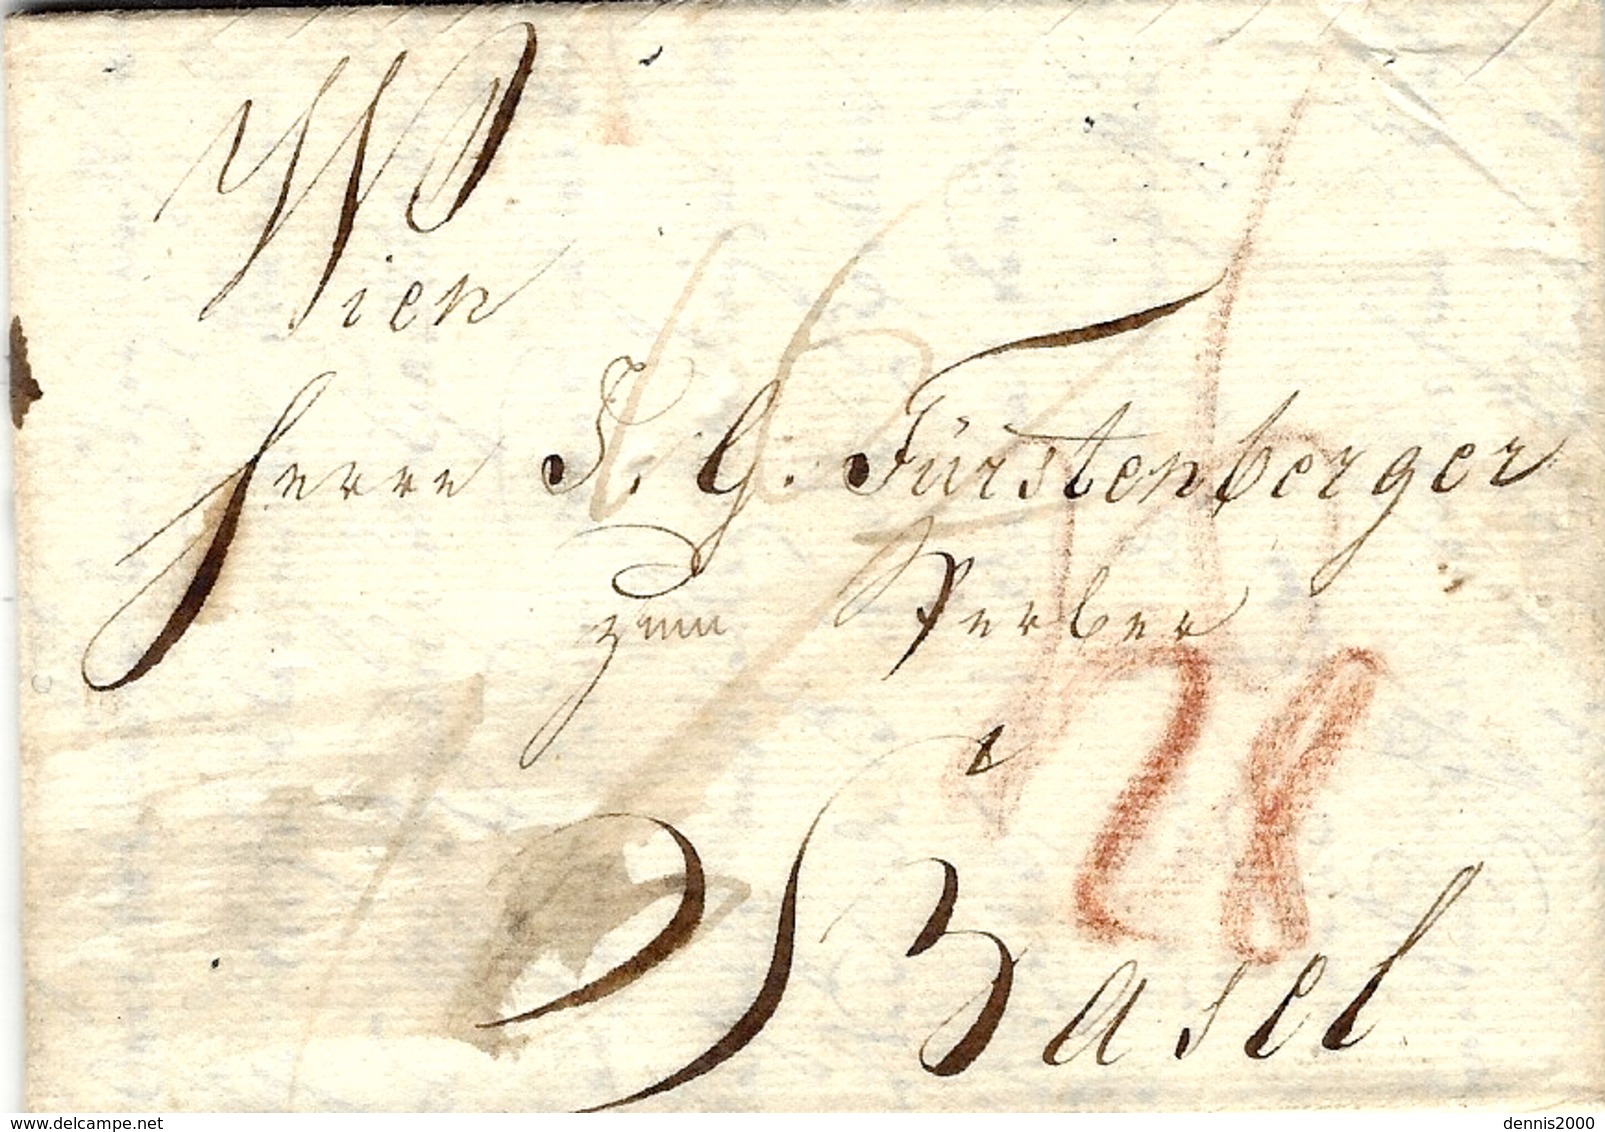 Wien
Herrn J. G. Fürstenberger
zum
à
Basel
28
www.delcampe.net
dennis2000